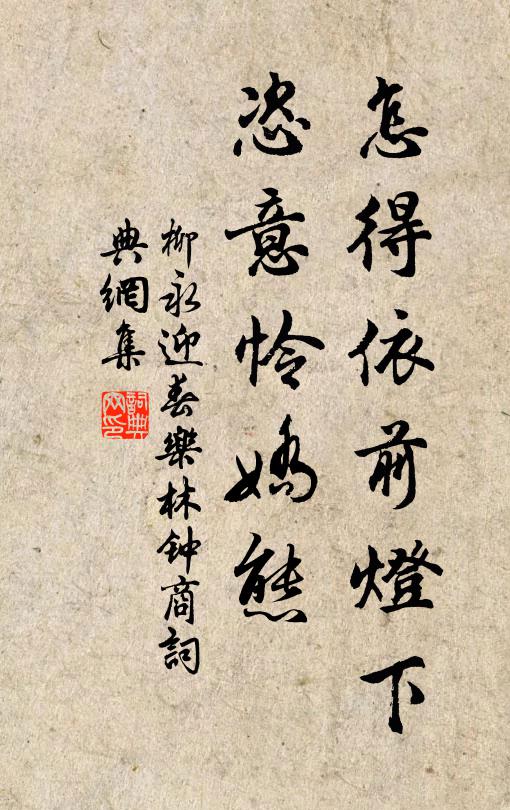 怎得依前燈下
恣意怜嬌態
柳永迎春樂林钟商詞
典網集
詞典網印